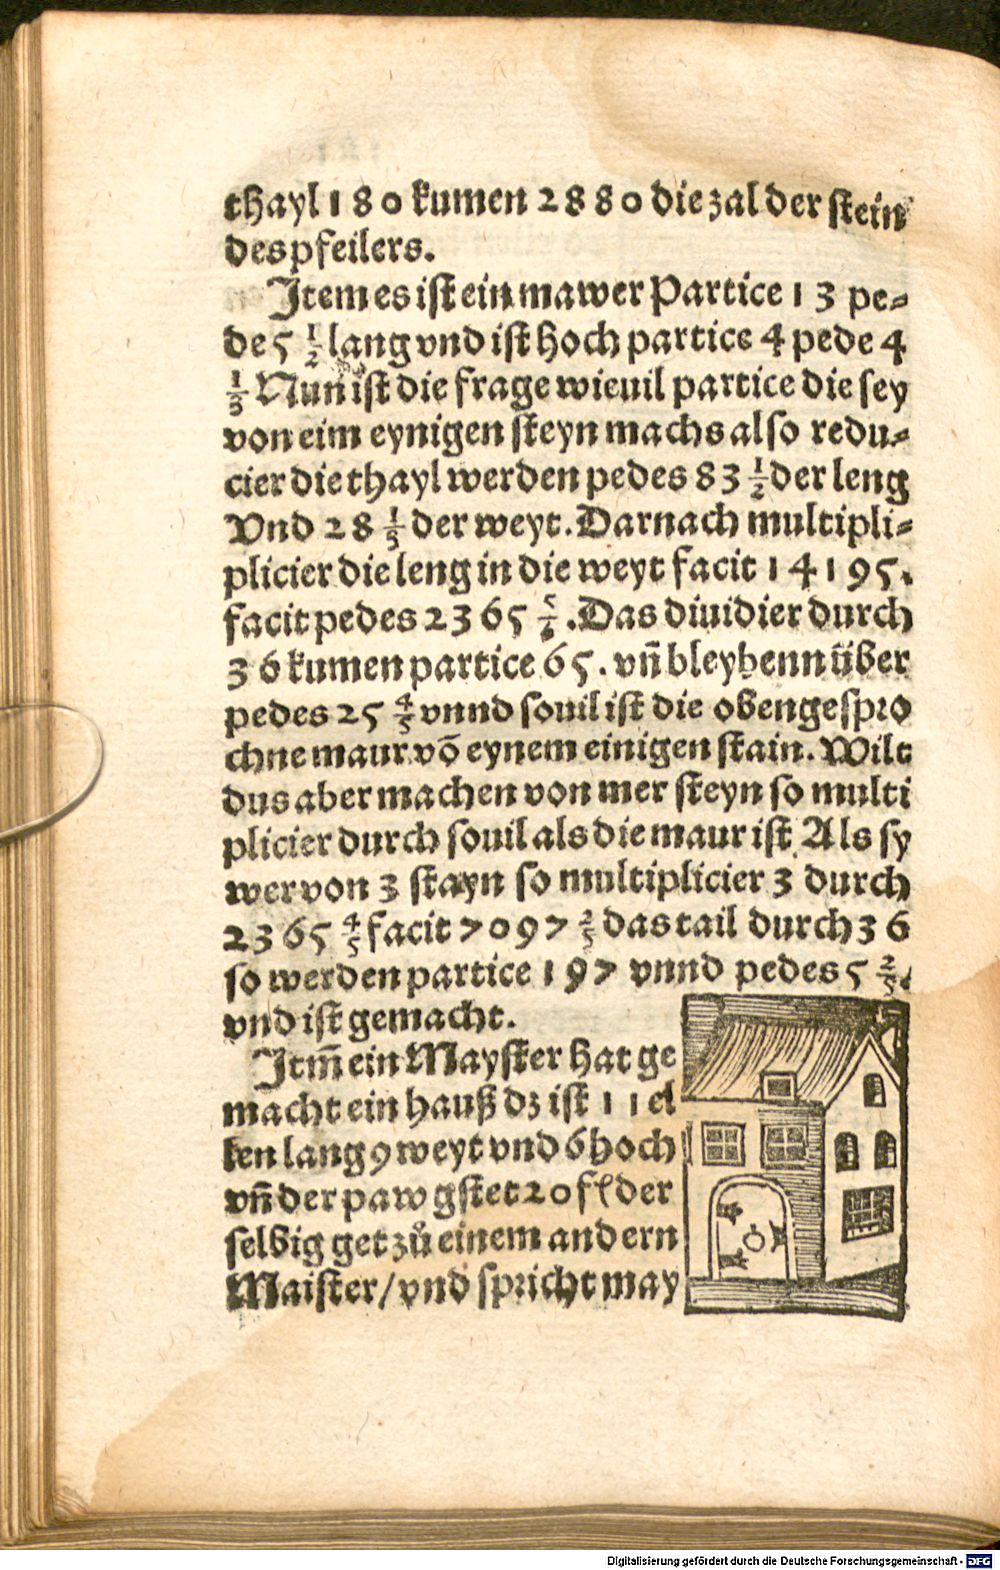 thayl 180 kumen 2880 die zal der stein
des pfeilers.
Item es ist ein mawer Partice 13 pe=
de 5 1/2 lang vnd ist hoch partice 4 pede 4
1/3 Nun ist die frage wieuil partice die sey
von eim eynigen steyn machs also redu=
cier die thayl werden pedes 83 1/2 der leng
Vnd 28 1/3 der weyt. Darnach multipli=
plicier die leng in die weyt facit 14195.
facit pedes 2365 5/6. Das diuidier durch
36 kumen partice 65. vñ bleybenn über
pedes 25 4/5 vnnd souil ist die obengespro
chne maur võ eynem einigen stain. Wilt
dus aber machen von mer steyn so multi
plicier durch souil als die maur ist Als sy
wer von 3 stayn so multiplicier 3 durch
2365 4/5 facit 7097 2/5 das tail durch 36
so werden partice 197 vnnd pedes 5 2/5.
vnd ist gemacht.
Itm̃ ein Mayster hat ge
macht ein hauß dz ist 11 el
len lang 9 weyt vnd 6 hoch
vñ der paw gstet 20 fl der
selbig get zů einem andern
Maister/vnd spricht may
Digitalisierung gefördert durch die Deutsche Forschungsgemeinschaft - DFG